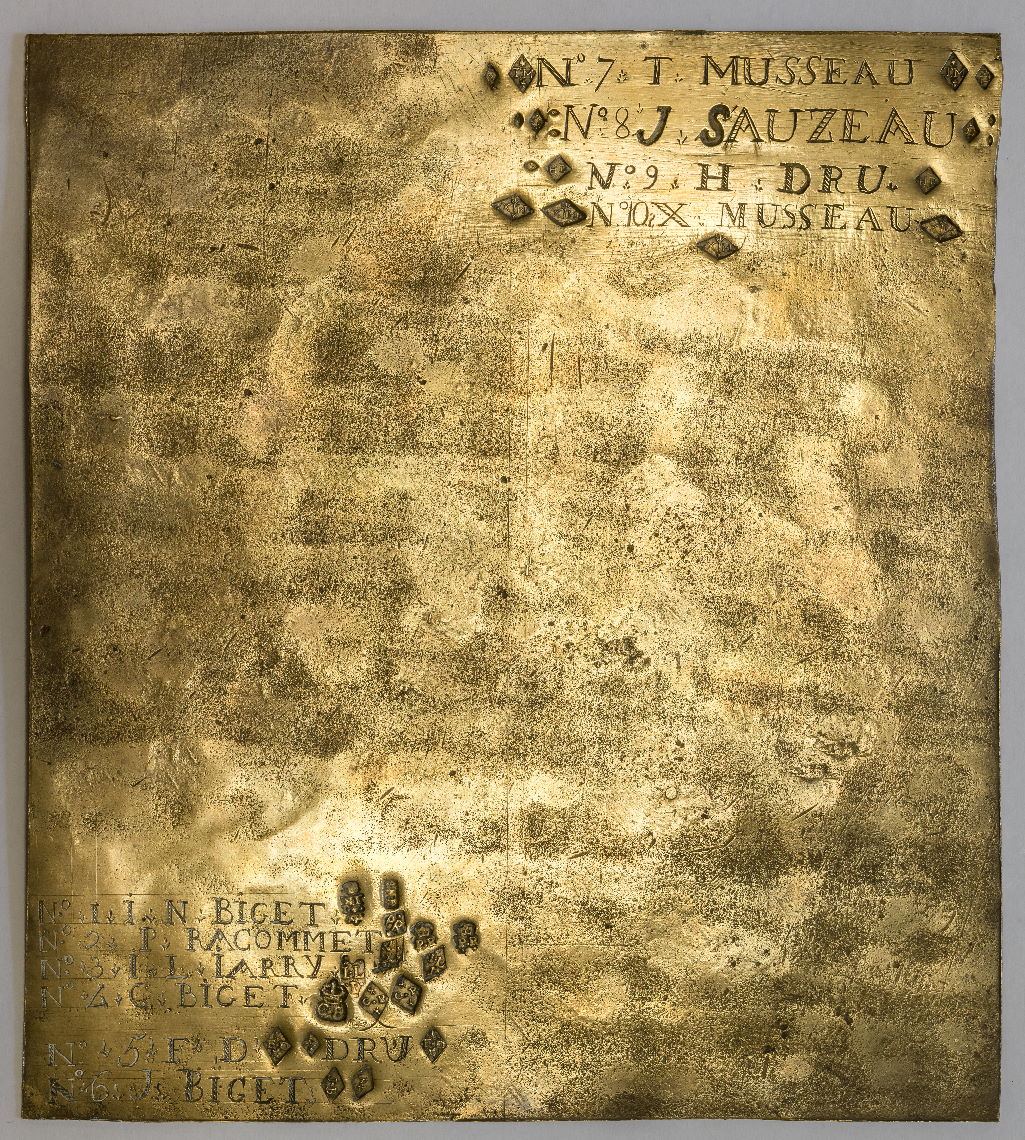 Nº 7 T MUSSEAU
Nº 8 J SAUZEAU
Nº 9 H DRU
Nº 10 X MUSSEAU
Nº 1 I N BIGET
Nº 2 P RACOMMET
Nº 3 I L LARRY
Nº 4 C BIGET
Nº 5 F D DRU
Nº 6 J BIGET